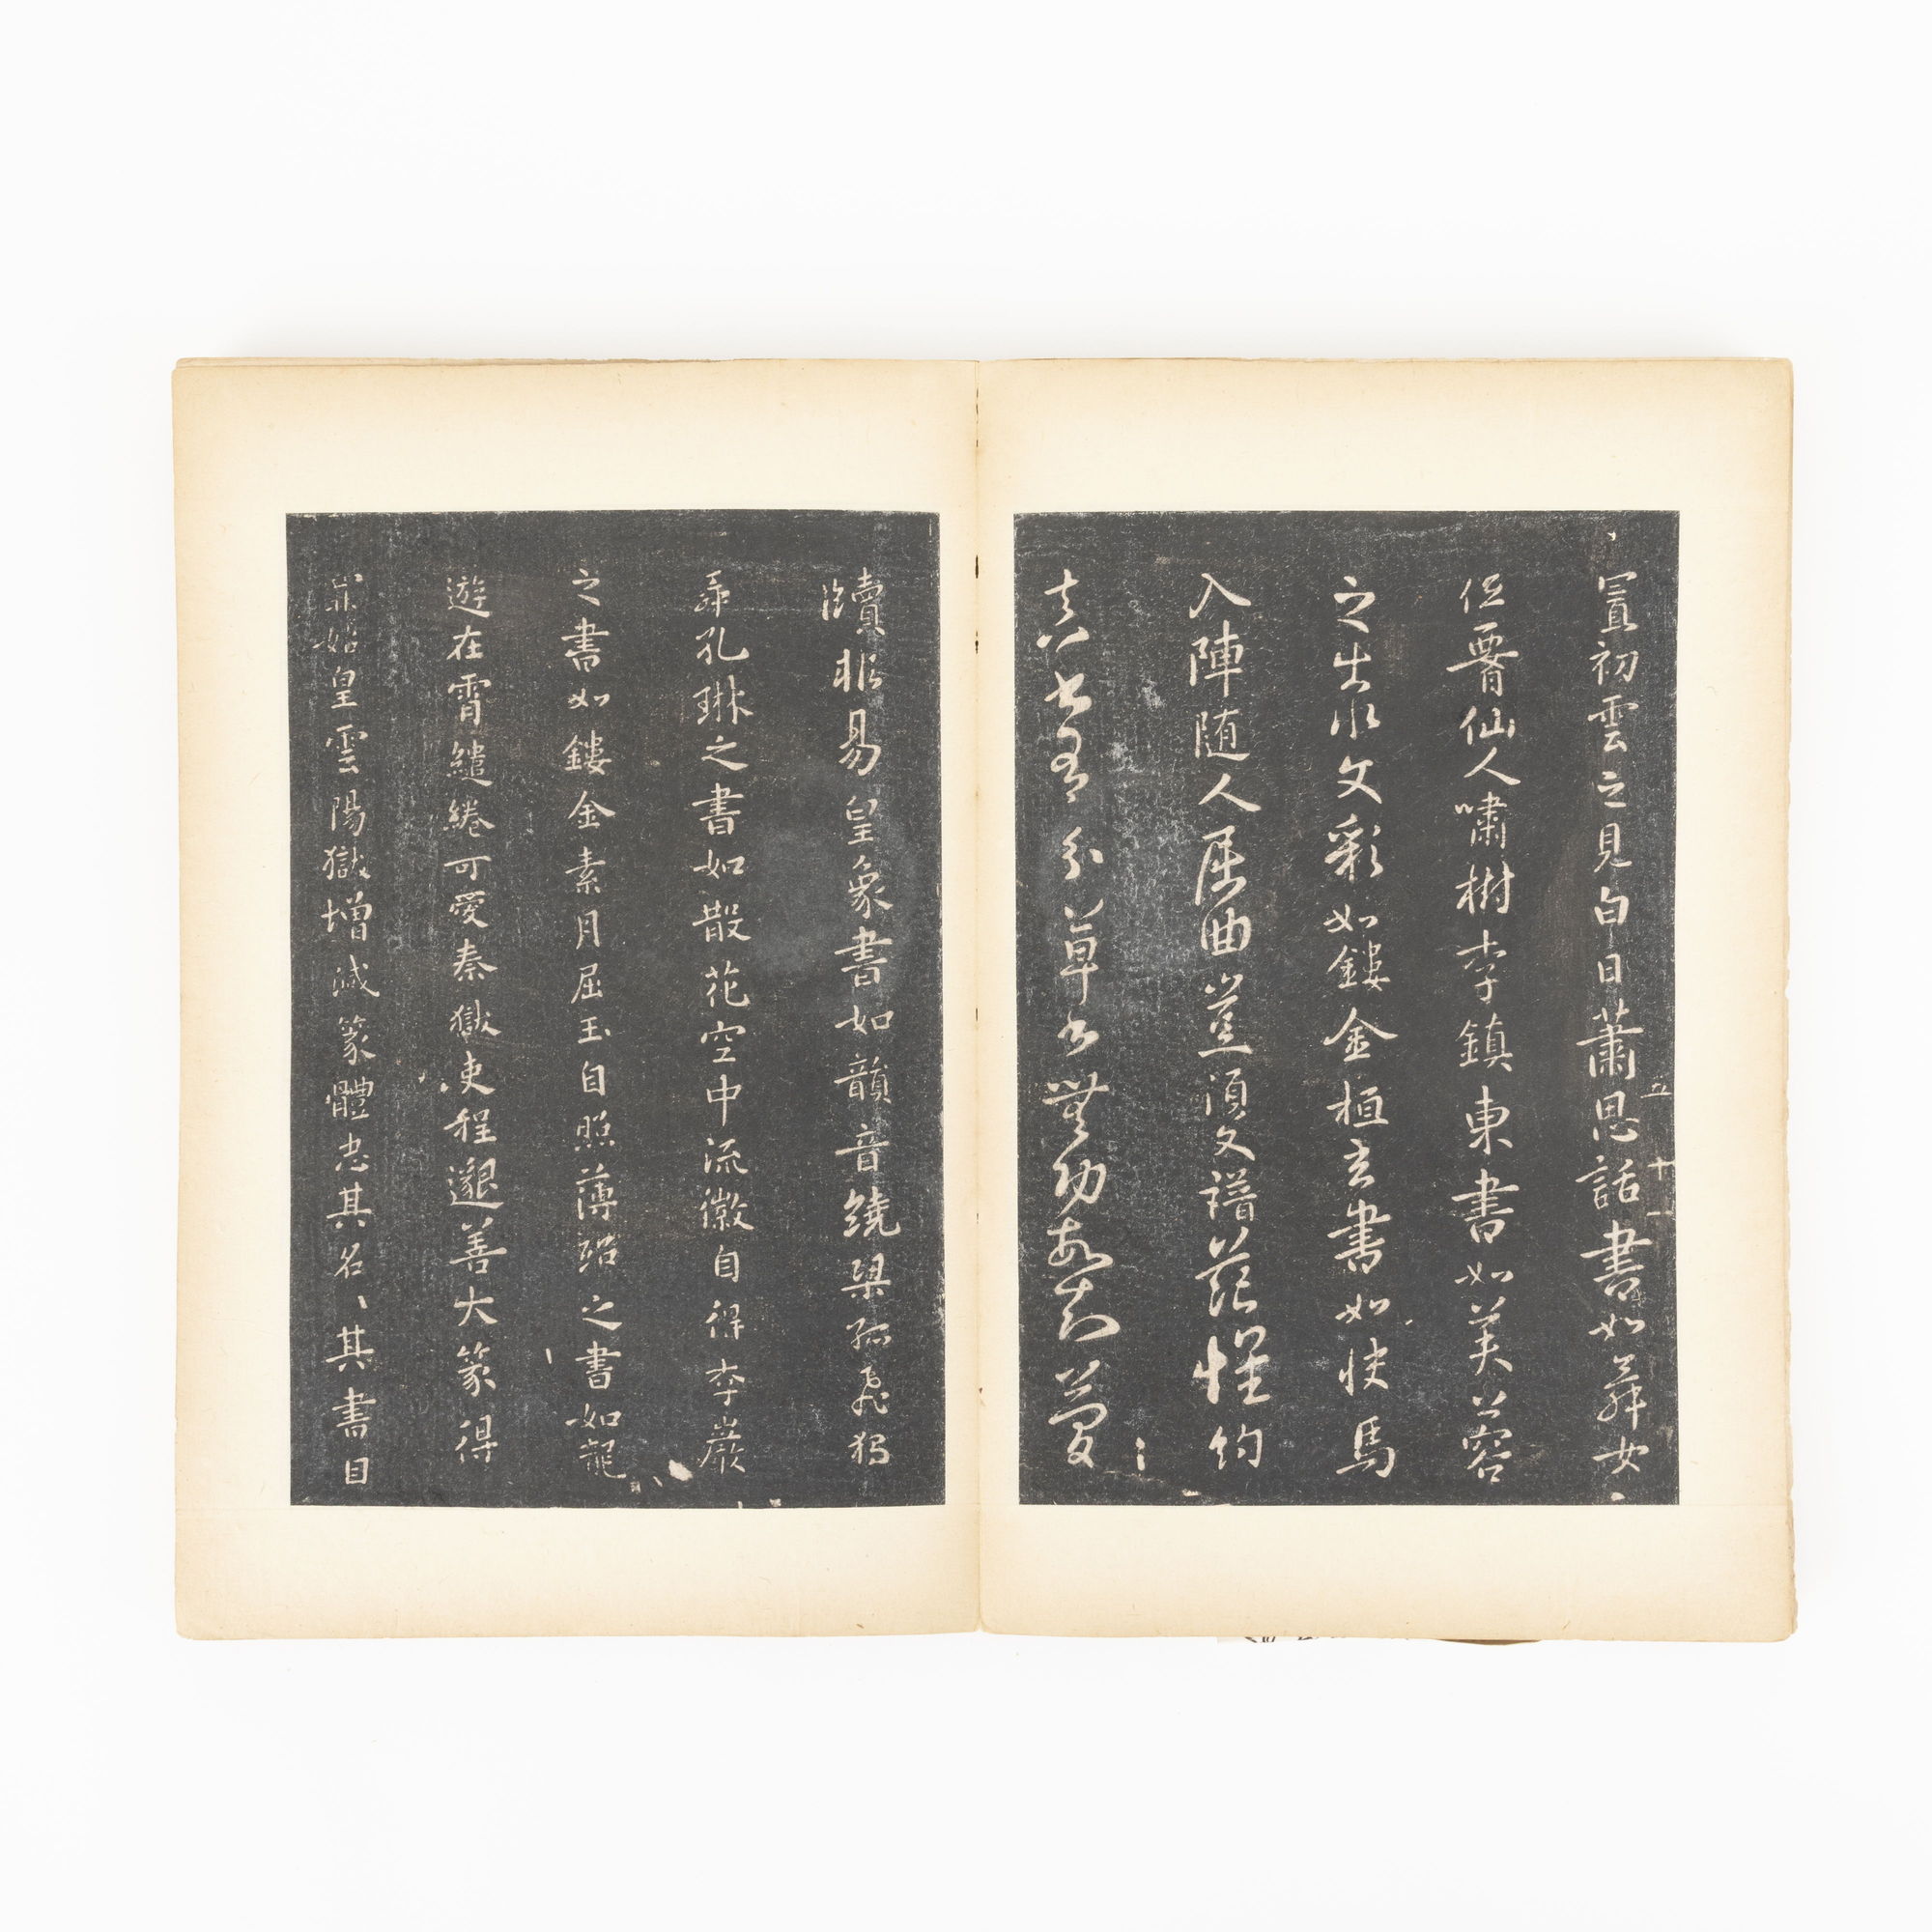 置初雲之見白日蕭思話書如舞女
五 十一
低腰仙人嘯樹李鎮東書如芙蓉
之出水文彩如鏤金桓玄書如快馬
入陣随人屈曲豈須文譜范懷約
真書有分草書無功故知簡
牘非易皇象書如韻音繞梁孤飛獨
舞孔琳之書如散花空中流徽自得李巖
之書如鏤金素月屈玉自照薄紹之書如龍
遊在霄繾綣可愛秦獄吏程邈善大篆得
罪始皇雲陽獄增減篆體忠其名其書曰